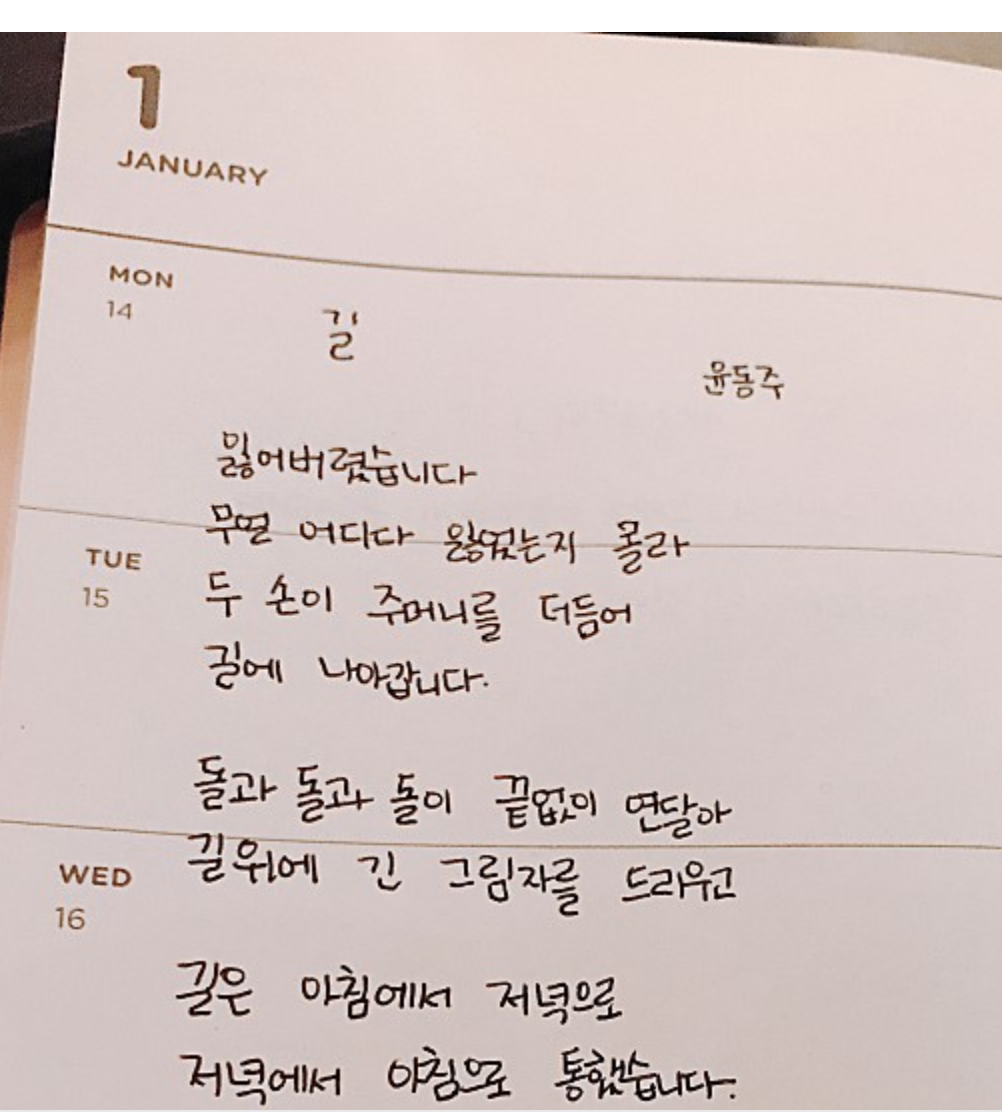 1
JANUARY
MON
14
길
윤동주
잃어버렸습니다
무얼 어디다 잃었는지 몰라
TUE
15
두 손이 주머니를 더듬어
길에 나아갑니다.
돌과 돌과 돌이 끝없이 연달아
길위에 긴 그림자를 드리우고
WED
16
길은 아침에서 저녁으로
저녁에서 아침으로 통했습니다.